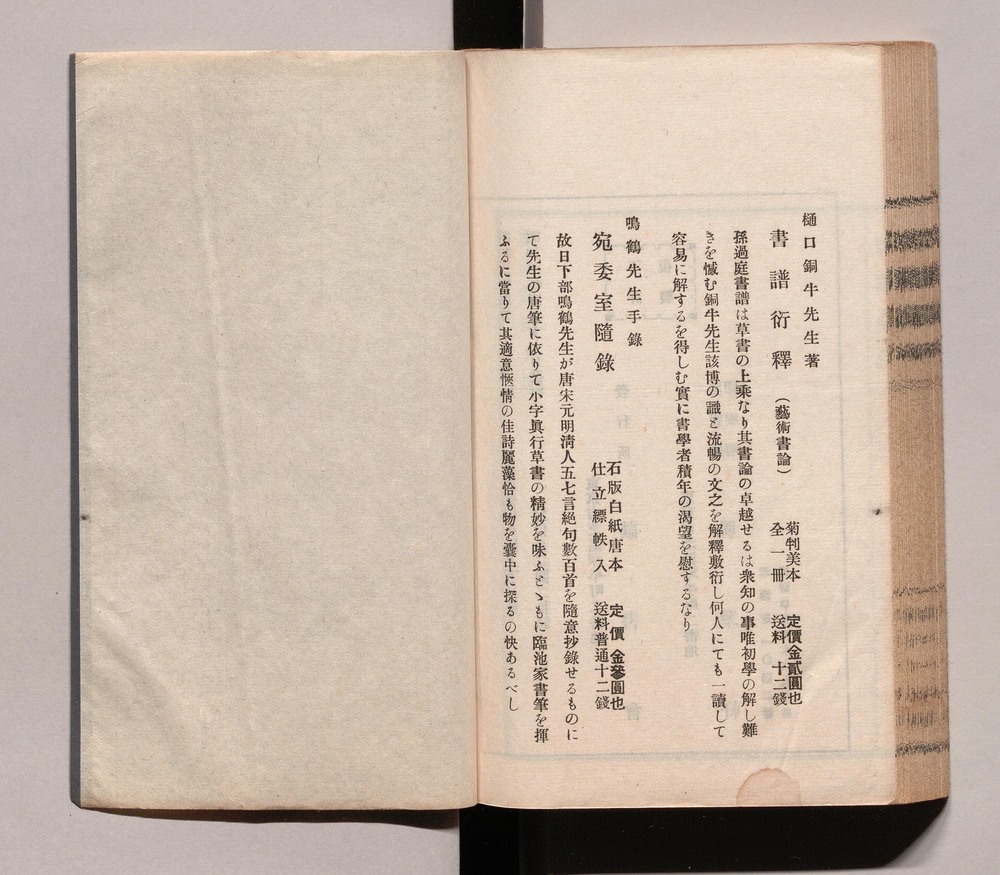 樋口銅牛先生著
書譜衍釋（藝術書論）
菊判美本
全一冊
定價金貳圓也
送料十二錢
孫過庭書譜は草書の上乘なり其書論の卓越せるは衆知の事唯初學の解し難
きを憾む銅牛先生該博の識と流暢の文之を解釋敷衍し何人にても一讀して
容易に解するを得しむ實に書學者積年の渴望を慰するなり
鳴鶴先生手錄
宛委室隨錄
石版白紙唐本
仕立縹帙入
定價金參圓也
送料普通十二錢
故日下部鳴鶴先生が唐宋元明淸人五七言絕句數百首を隨意抄錄せるものに
て先生の唐筆に依りて小字眞行草書の精妙を味ふとゝもに臨池家書筆を揮
ふるに當りて其適意愜情の佳詩麗藻恰も物を囊中に探るの快あるべし